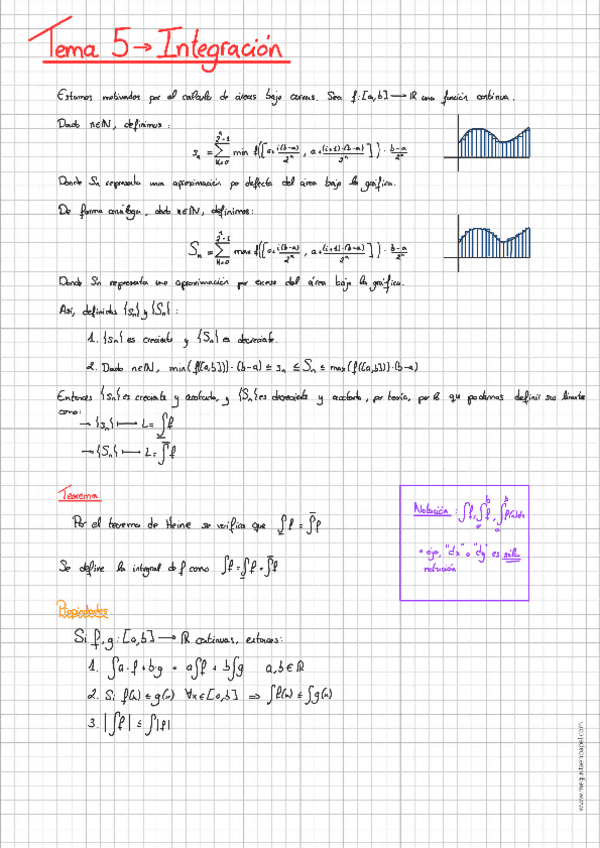 Tema 5 → Integración
Estamos motivados por el calculo de áreas bajo curvas. Sea f: [a,b] → ℝ una función continua.
Dado n∈ℕ, definimos:
s_n = ∑_{k=0}^{2^n-1} min f([a+ i(b-a)/2^n , a+ (i+1)·(b-a)/2^n ]) · b-a/2^n
Donde S_n representa una aproximación por defecto del área bajo la gráfica.
De forma análoga, dado n∈ℕ, definimos:
S_n = ∑_{k=0}^{2^n-1} max f([a+ i(b-a)/2^n , a+ (i+1)·(b-a)/2^n ]) · b-a/2^n
Donde S_n representa una aproximación por exceso del área bajo la gráfica.
Así, definidas {s_n} y {S_n}:
1. {s_n} es creciente y {S_n} es decreciente.
2. Dado n∈ℕ, min(f([a,b]))·(b-a) ≤ s_n ≤ S_n ≤ max(f([a,b]))·(b-a)
Entonces {s_n} es creciente y acotada, y {S_n} es decreciente y acotada, por teoría, por lo que podemos definir sus límites
como:
→ {s_n} ⟼ L = ∫̲ f
→ {S_n} ⟼ L = ∫̅ f
Teorema
Por el teorema de Heine se verifica que ∫̲ f = ∫̅ f
Se define la integral de f como ∫f = ∫̲ f = ∫̅ f
Notación: ∫f, ∫_a^b f, ∫_a^b f(x)dx
• ojo, "dx" o "dy" es sólo
notación
Propiedades
Si f,g: [a,b] → ℝ continuas, entonces:
1. ∫a·f + b·g = a∫f + b∫g a,b∈ℝ
2. Si f(x) ≤ g(x) ∀x∈[a,b] ⇒ ∫f(x) ≤ ∫g(x)
3. |∫f| ≤ ∫|f|
www.megustaenpapel.com